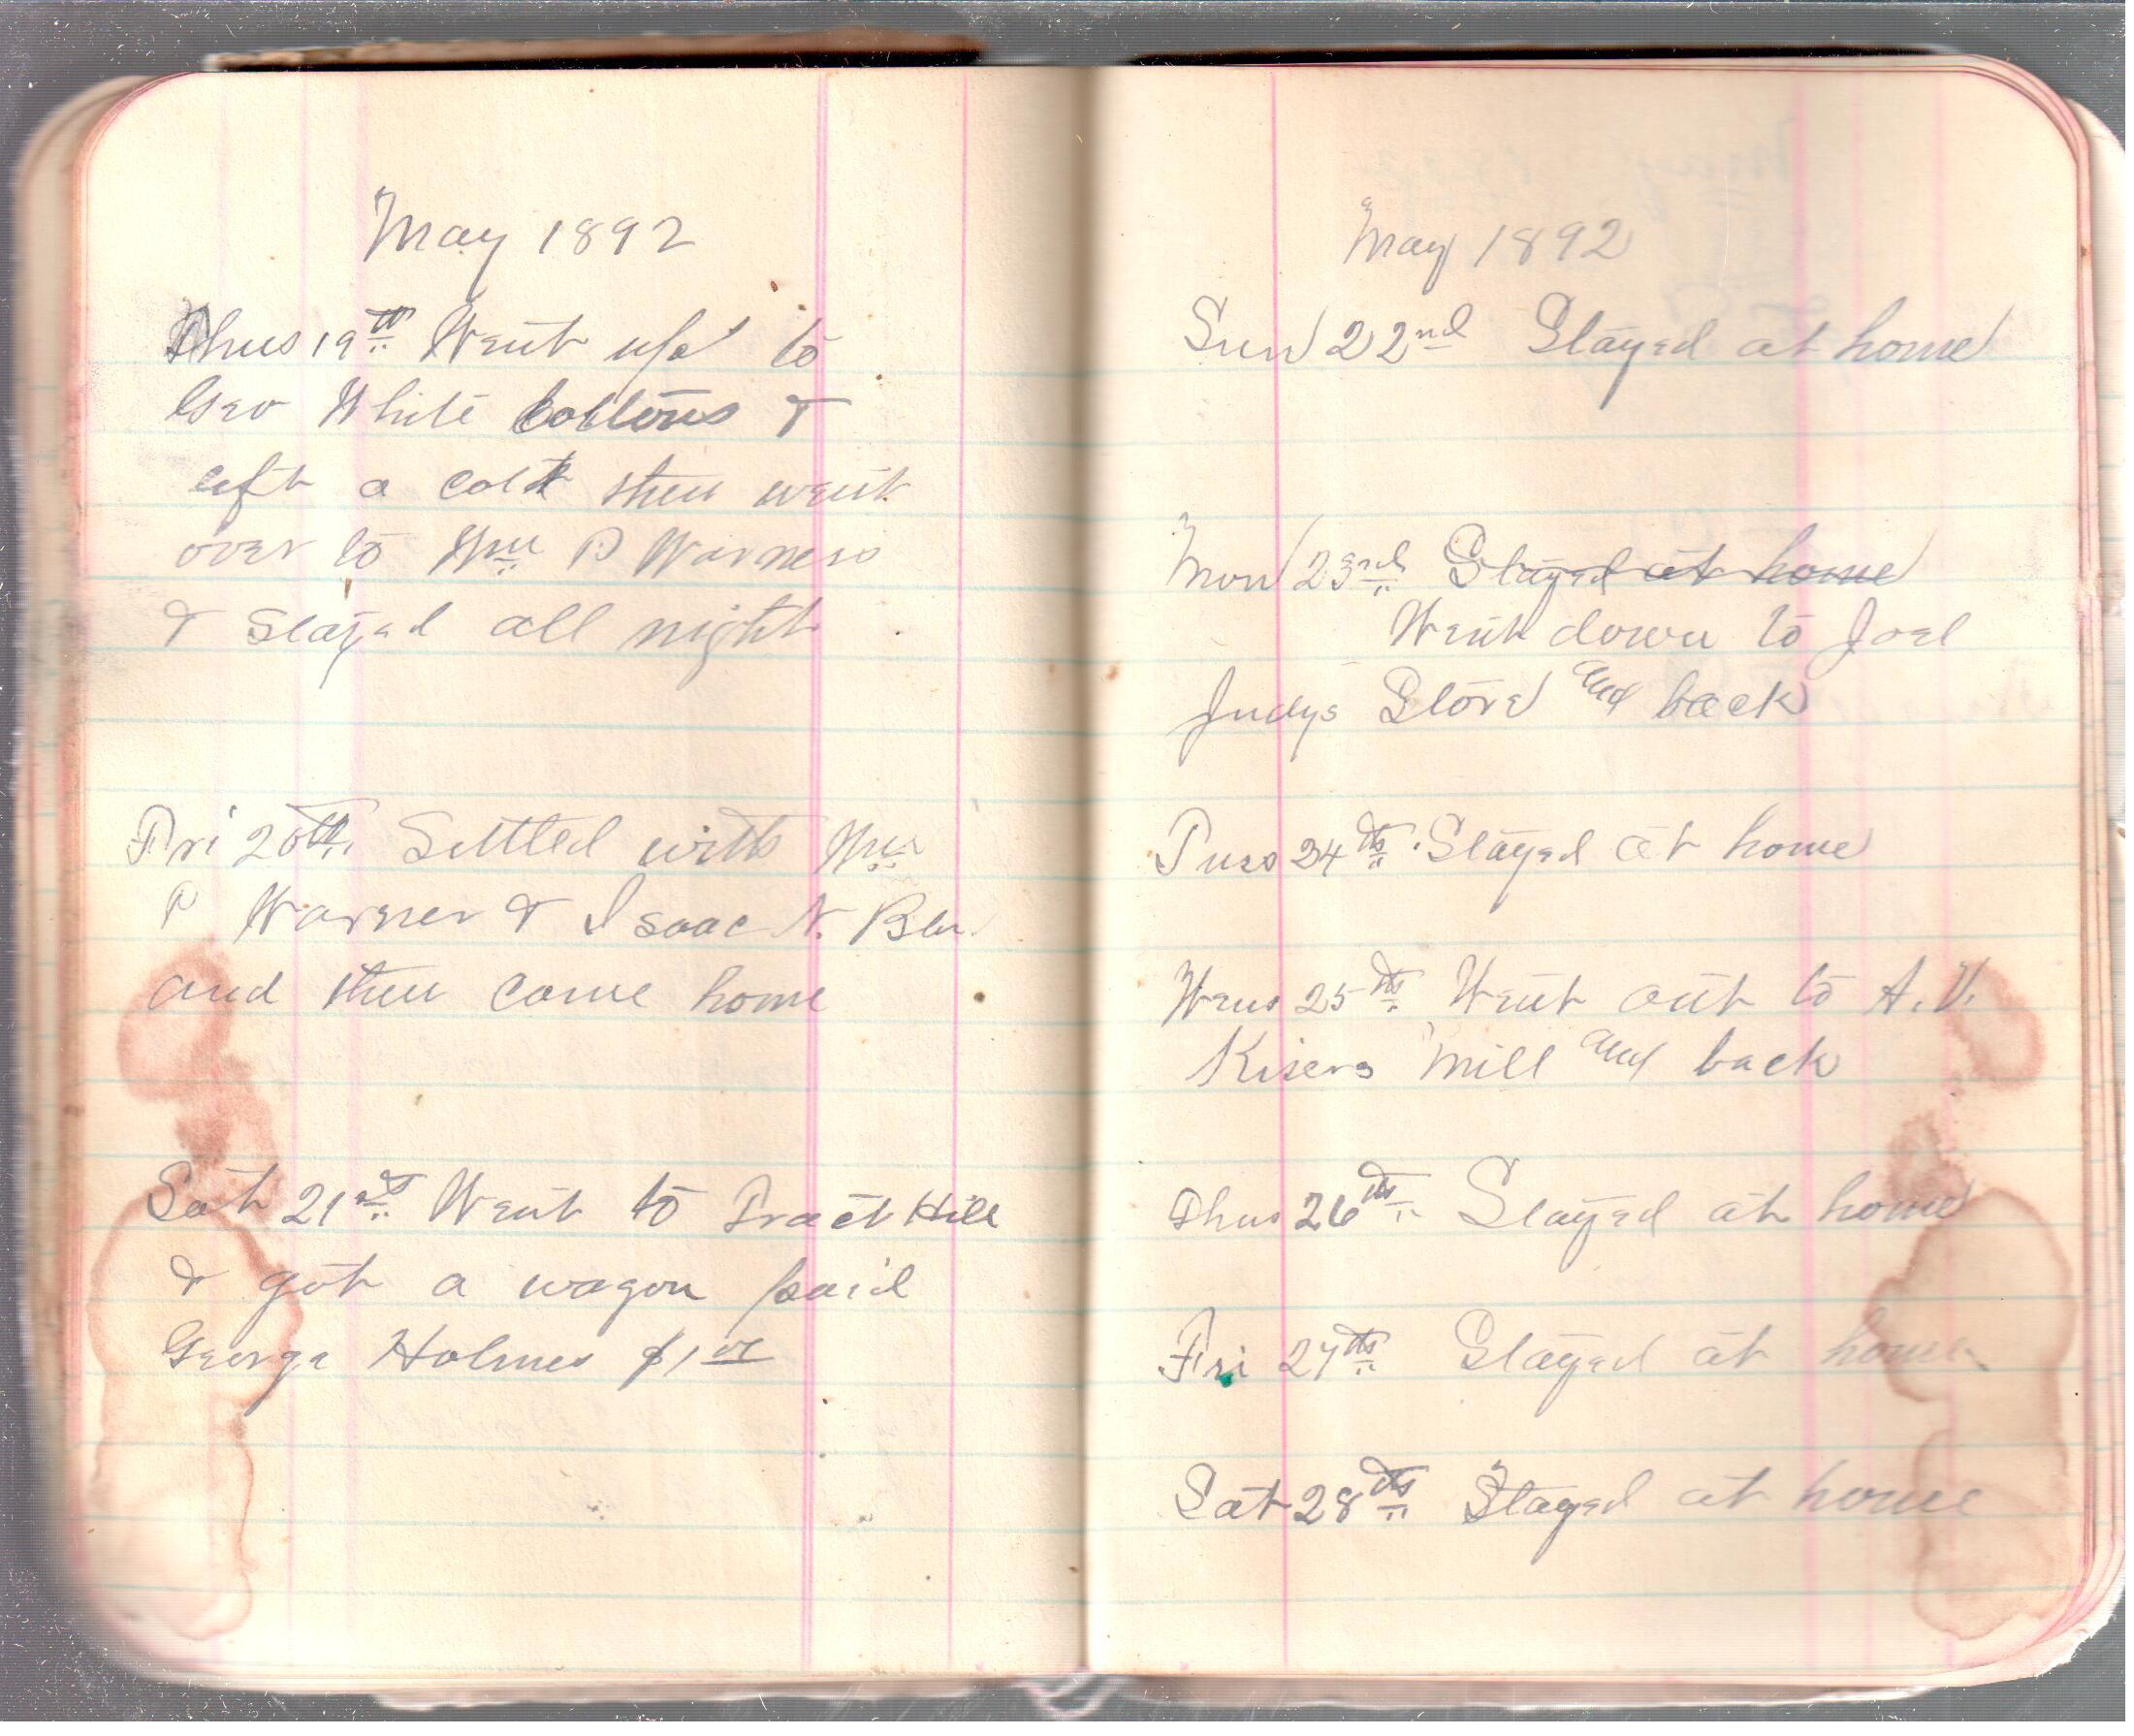 May 1892
Thus 19th Went up to
Geo White bottons &
left a colt then went
over to Wm P Warners
& Stayed all night
Fri 20th Settled with Wm
P Warner & Isaac N.
and then came home
Sat 21st Went to Tract Hill
& got a wagon paid
George Holmes $1 00
May 1892
Sun 22nd Stayed at home
Mon 23rd Stayed at home
Went down to Joel
Judys Store and back
Tues 24th Stayed at home
Wens 25th Went out to A. V.
Kisers Mill and back
Thus 26th Stayed at home
Fri 27th Stayed at home
Sat 28th Stayed at home